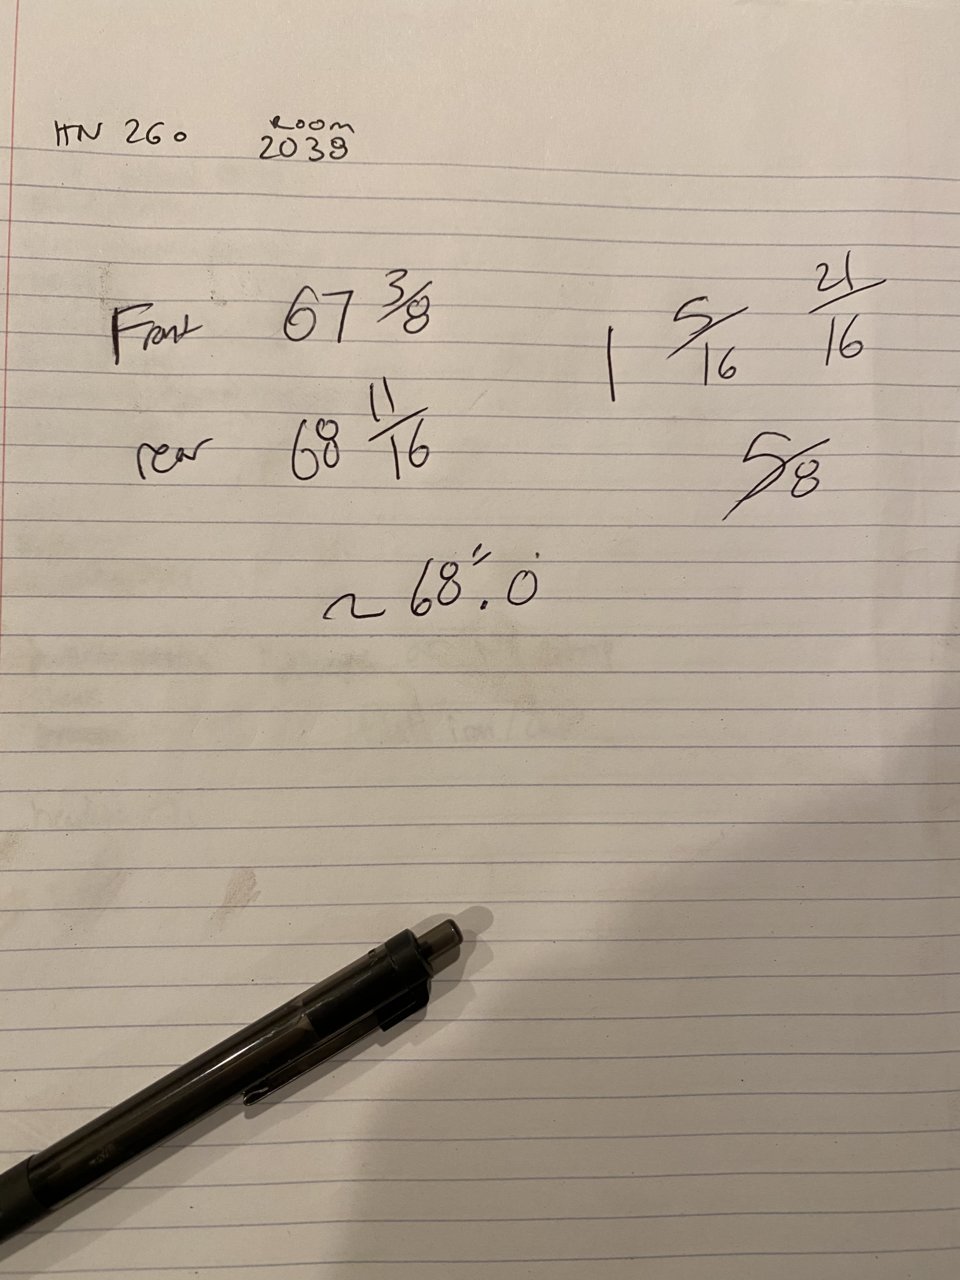 HN 260 Room 2039
Front 67 3/8
rear 68 11/16
~ 68".0
1 5/16 21/16
5/8